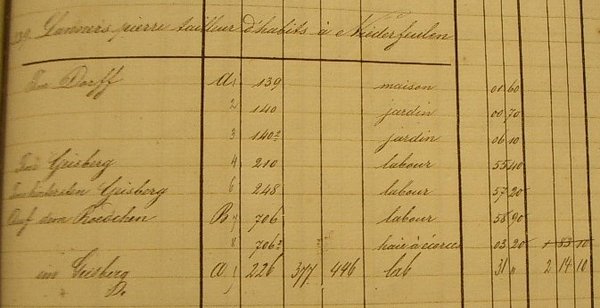 Lanners pierre tailleur d'habits à Niederfeulen
Im Dorff A 1 139 maison 01 60
2 140 jardin 00 70
3 140² jardin 06 10
Geisberg 4 210 labour 55 40
Geisberg 6 248 labour 57 20
Auf dem Roedchen B 7 706 labour 58 90
8 706² haie à écorces 03 20 1 83 10
im Geisberg A 226 377 446 lab 31 " 2 14 10
D.